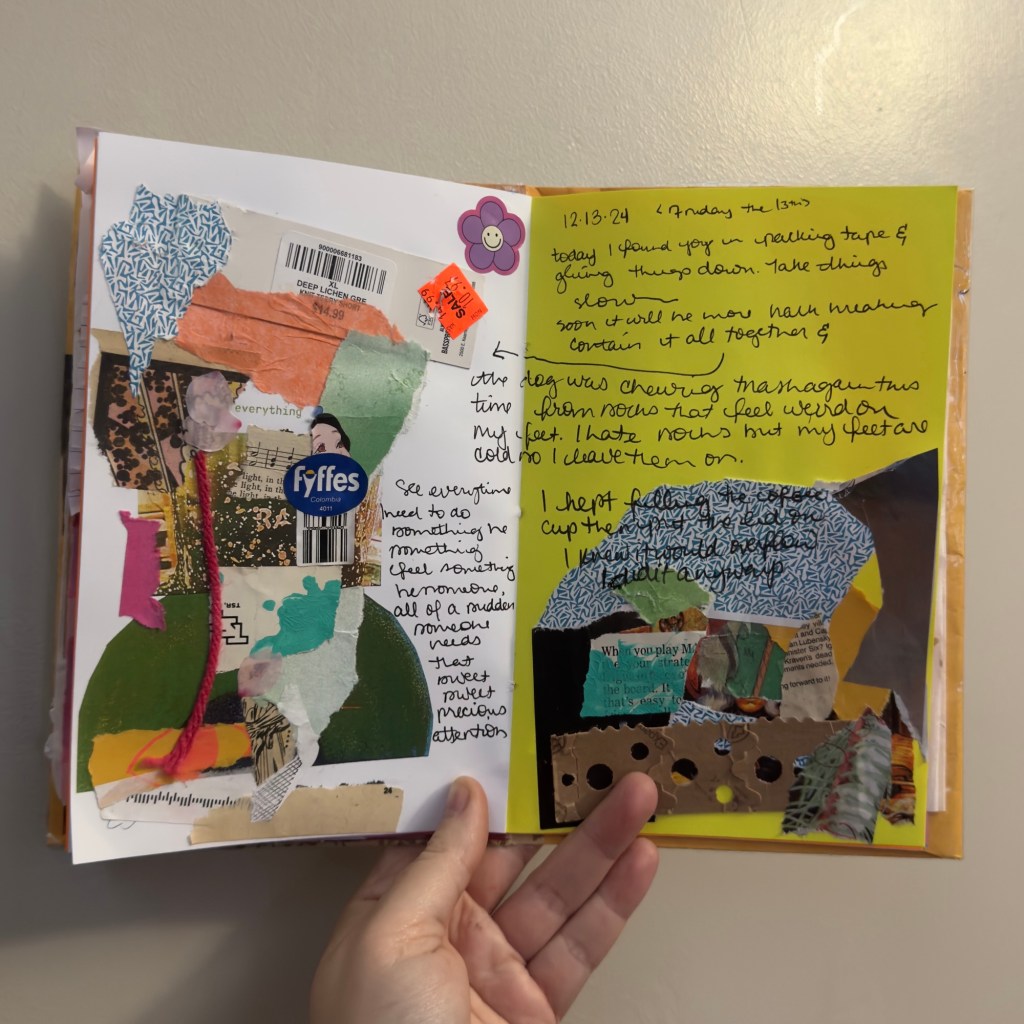 900006681183
XL
DEEP LICHEN GRE
$14.99
SALE
everything
light, in th
light, in
Fyffes
Colombia
4011
TSR.
24
See everytime
I need to do
something be
something
feel something
be someone,
all of a sudden
someone
needs
that
sweet
sweet
precious
attention
12.13.24 (Friday the 13th)
today I found joy in packing tape &
gluing things down. Take things
slow
soon it will be more have meaning
contain it all together &
the dog was chewing trash again this
time from socks that feel weird on
my feet. I hate socks but my feet are
cold so I leave them on.
I kept filling the coffee
cup then put the lid on
I knew it would
I did it anyway
When you play M
the board. It
that's easy to
and Ca
an Lubensk
Kraven's dead
ments needed.
ng forward to it!